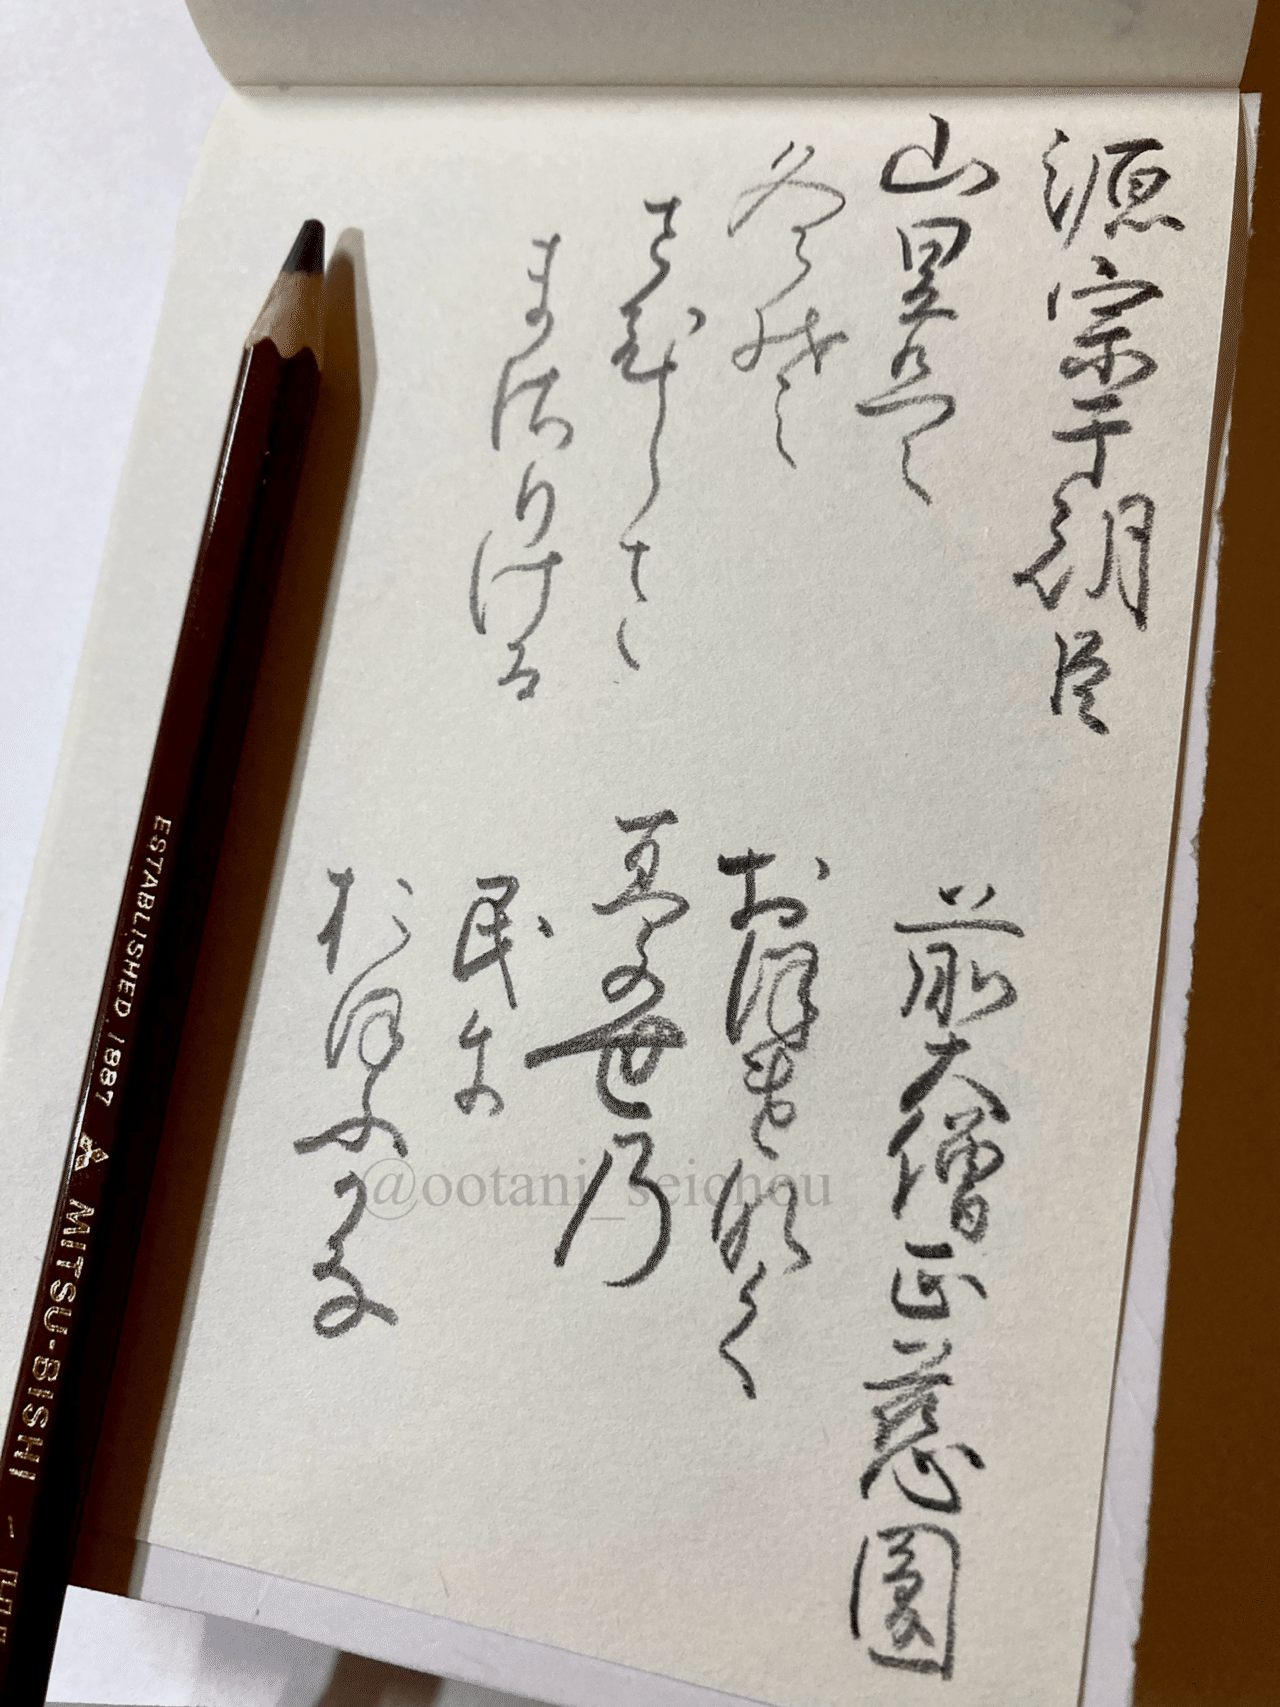 源宗于朝臣
山里は
冬そ
さひしさ
まさりける
前大僧正慈圓
おほけなく
うき世乃
民に
おほふかな
ESTABLISHED.1887 MITSU-BISHI
@ootani_seichou